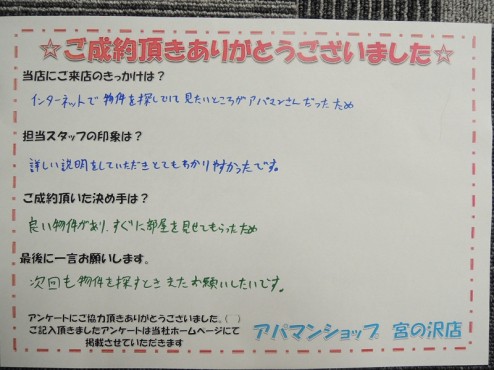 ☆ご成約頂きありがとうございました☆
当店にご来店のきっかけは？
インターネットで物件を探していて見たいところがアパマンさんだったため
担当スタッフの印象は？
詳しい説明をしていただきとてもわかりやすかったです。
ご成約頂いた決め手は？
良い物件があり、すぐに部屋を見せてもらったため
最後に一言お願いします。
次回も物件を探すときまたお願いしたいです。
アンケートにご協力頂きありがとうございました。
ご記入頂きましたアンケートは当社ホームページにて
掲載させていただきます
アパマンショップ 宮の沢店